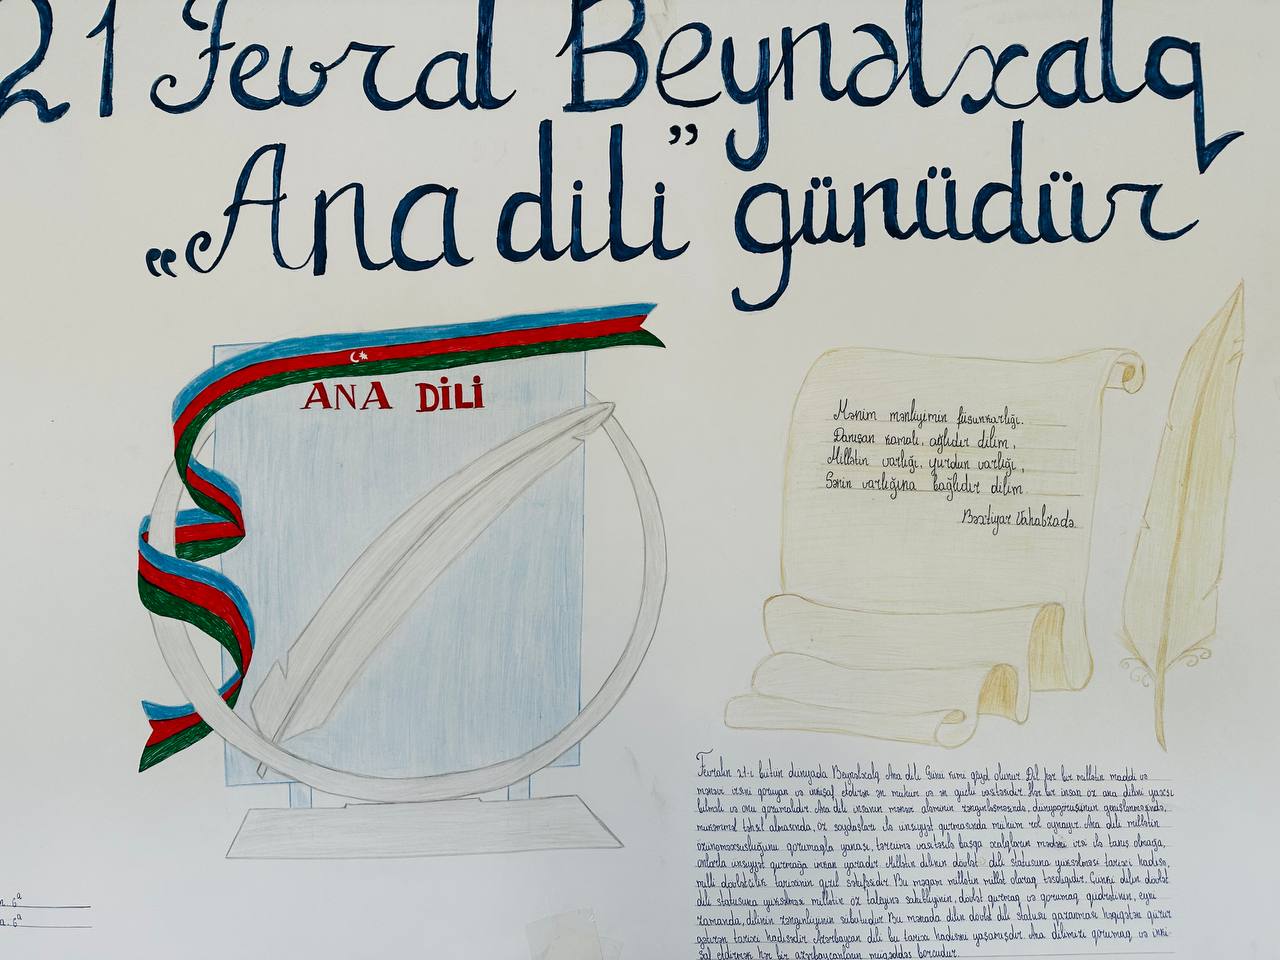 21 Fevral Beynəlxalq
„Ana dili” günüdür
ANA DİLİ
Mənim mənliyimin füsunkarlığı.
Danışan kamalı, ağlıdır dilim,
Millətin varlığı, yurdun varlığı,
Sənin varlığına bağlıdır dilim
Bəxtiyar Vahabzadə
Fevralın 21-i bütün dünyada Beynəlxalq Ana dili Günü kimi qeyd olunur. Dil hər bir millətin maddi və
mənəvi irsini qoruyan və inkişaf etdirən ən mühüm və ən güclü vasitəsidir. Hər bir insan öz ana dilini yaxşı
bilməli və onu qorumalıdır. Ana dili insanın mənəvi aləminin zənginləşməsində, dünyagörüşünün genişlənməsində,
mükəmməl təhsil almasında, öz soydaşları ilə ünsiyyət qurmasında mühüm rol oynayır. Ana dili millətin
özünəməxsusluğunu qorumaqla yanaşı, tərcümə vasitəsilə başqa xalqların mədəni irsi ilə tanış olmağa,
onlarla ünsiyyət qurmağa imkan yaradır. Millətin dilinin dövlət dili statusuna yüksəlməsi tarixi hadisə,
milli dövlətçilik tarixinin qızıl səhifəsidir. Bu məqam millətin millət olaraq təsdiqidir. Çünki dilin dövlət
dili statusuna yüksəlməsi millətin öz taleyinə sahibliyinin, dövlət qurmaq və qorumaq qüdrətinin, eyni
zamanda, dilinin zənginliyinin sübutudur. Bu mənada dilin dövlət dili statusu qazanması həqiqətən qürur
gətirən tarixi hadisədir. Azərbaycan dili bu tarixi hadisəni yaşamışdır. Ana dilimizi qorumaq və inki-
şaf etdirmək hər bir azərbaycanlının müqəddəs borcudur.
6ᵃ
6ᵃ